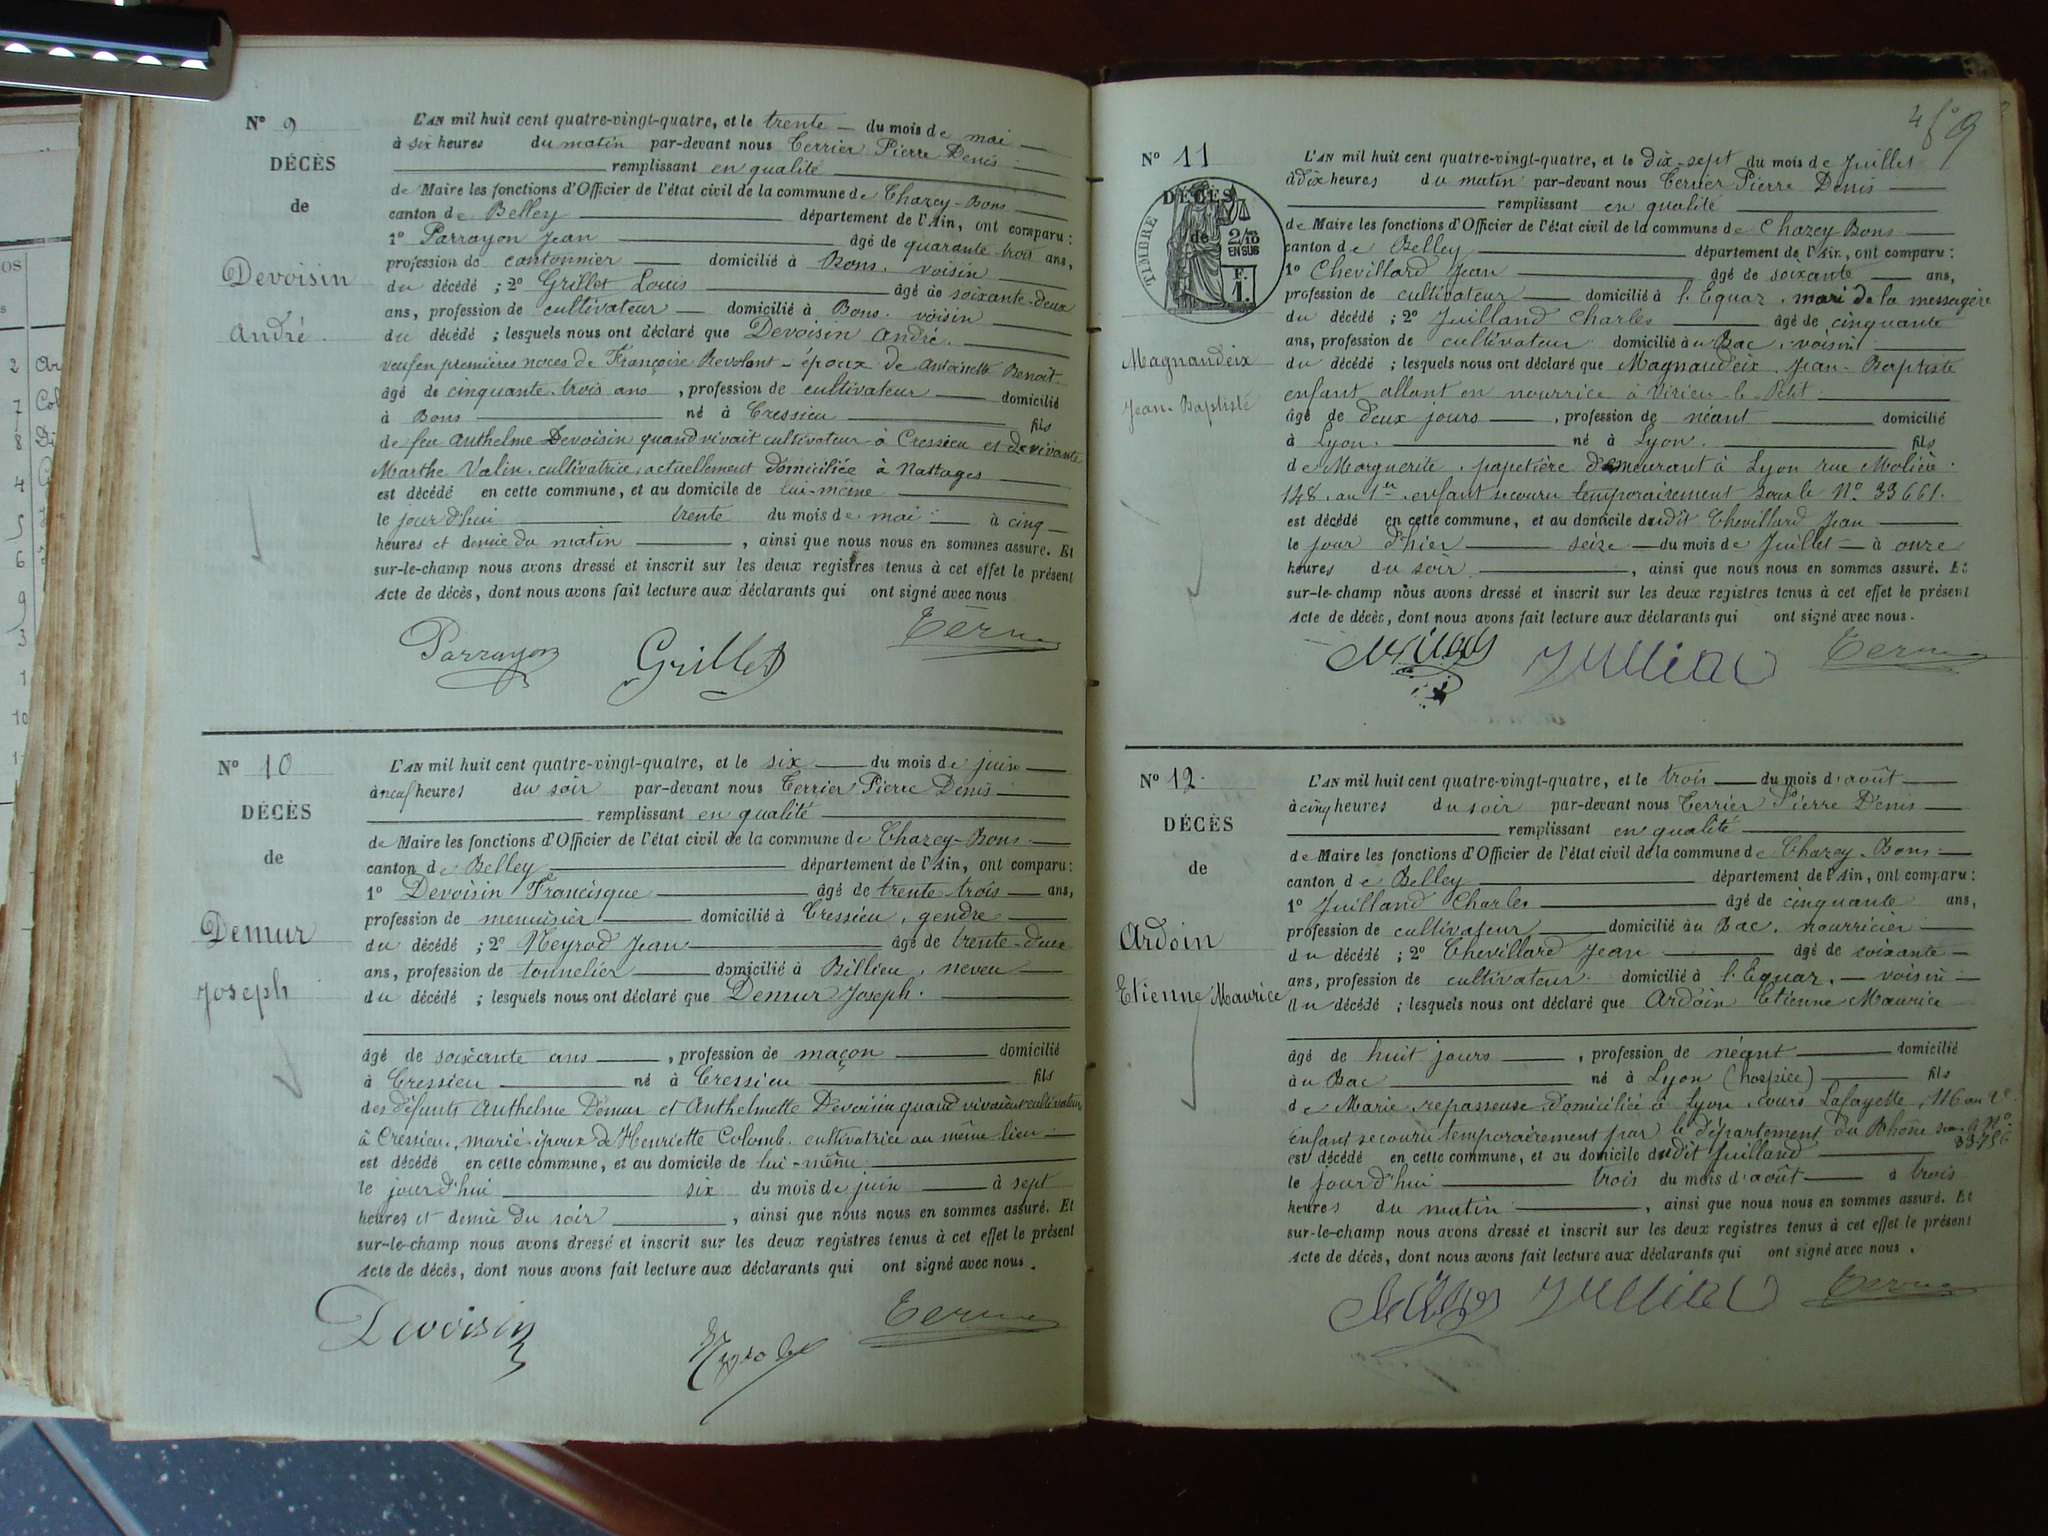 Nº 9
DÉCÈS
de
Devoisin
André.
L'AN mil huit cent quatre-vingt-quatre, et le trente du mois de mai
à six heures du matin par-devant nous Terrier Pierre Denis
remplissant en qualité
de Maire les fonctions d'Officier de l'état civil de la commune de Chazey-Bons
canton de Belley département de l'Ain, ont comparu :
1º Parrayon Jean âgé de quarante-trois ans,
profession de cantonnier domicilié à Bons, voisin
du décédé ; 2º Grillet Louis âgé de soixante-deux
ans, profession de cultivateur domicilié à Bons, voisin
du décédé ; lesquels nous ont déclaré que Devoisin André.
veuf en premières noces de Françoise Revolont - époux de Antoinette Benoit.
âgé de cinquante-trois ans, profession de cultivateur domicilié
à Bons né à Cressieu fils
de feu Anthelme Devoisin quand vivait cultivateur à Cressieu et de vivante
Marthe Valin, cultivatrice, actuellement domiciliée à Nattages
est décédé en cette commune, et au domicile de lui-même
le jourd'hui trente du mois de mai à cinq
heures et demie du matin, ainsi que nous nous en sommes assuré. Et
sur-le-champ nous avons dressé et inscrit sur les deux registres tenus à cet effet le présent
Acte de décès, dont nous avons fait lecture aux déclarants qui ont signé avec nous
Parrayon Grillet Terrier
Nº 10
DÉCÈS
de
Demur
Joseph
L'AN mil huit cent quatre-vingt-quatre, et le six du mois de juin
à neuf heures du soir par-devant nous Terrier Pierre Denis
remplissant en qualité
de Maire les fonctions d'Officier de l'état civil de la commune de Chazey-Bons
canton de Belley département de l'Ain, ont comparu :
1º Devoisin Francisque âgé de trente-trois ans,
profession de menuisier domicilié à Cressieu, gendre
du décédé ; 2º Neyrod Jean âgé de trente-deux
ans, profession de tonnelier domicilié à Billieu, neveu
du décédé ; lesquels nous ont déclaré que Demur Joseph.
âgé de soixante ans, profession de maçon domicilié
à Cressieu né à Cressieu fils
des défunts Anthelme Demur et Anthelmette Devoisin quand vivaient cultivateurs
à Cressieu, marié époux de Henriette Colomb, cultivatrice au même lieu
est décédé en cette commune, et au domicile de lui-même
le jourd'hui six du mois de juin à sept
heures et demie du soir, ainsi que nous nous en sommes assuré. Et
sur-le-champ nous avons dressé et inscrit sur les deux registres tenus à cet effet le présent
Acte de décès, dont nous avons fait lecture aux déclarants qui ont signé avec nous.
Devoisin Neyrod Terrier
9
Nº 11
DÉCÈS
de
TIMBRE
2/10
EN SUS
F.
1.
Magnaudeix
Jean-Baptiste
L'AN mil huit cent quatre-vingt-quatre, et le dix-sept du mois de Juillet
à dix heures du matin par-devant nous Terrier Pierre Denis
remplissant en qualité
de Maire les fonctions d'Officier de l'état civil de la commune de Chazey-Bons
canton de Belley département de l'Ain, ont comparu :
1º Chevillard Jean âgé de soixante ans,
profession de cultivateur domicilié à l'Equaz, mari de la messagère
du décédé ; 2º Juilland Charles âgé de cinquante
ans, profession de cultivateur domicilié au Bac, voisin
du décédé ; lesquels nous ont déclaré que Magnaudeix Jean-Baptiste
enfant allant en nourrice à Virieu-le-Petit.
âgé de deux jours, profession de néant domicilié
à Lyon. né à Lyon. fils
de Marguerite, papetière demeurant à Lyon rue Molière
148, au 1er, enfant secouru temporairement sous le Nº 33661.
est décédé en cette commune, et au domicile dudit Chevillard Jean
le jour d'hier seize du mois de Juillet à onze
heures du soir, ainsi que nous nous en sommes assuré. Et
sur-le-champ nous avons dressé et inscrit sur les deux registres tenus à cet effet le présent
Acte de décès, dont nous avons fait lecture aux déclarants qui ont signé avec nous.
Terrier
Nº 12.
DÉCÈS
de
Ardoin
Etienne Maurice
L'AN mil huit cent quatre-vingt-quatre, et le trois du mois d'août
à cinq heures du soir par-devant nous Terrier Pierre Denis
remplissant en qualité
de Maire les fonctions d'Officier de l'état civil de la commune de Chazey-Bons
canton de Belley département de l'Ain, ont comparu :
1º Juilland Charles âgé de cinquante ans,
profession de cultivateur domicilié au Bac, nourricier
du décédé ; 2º Chevillard Jean âgé de soixante
ans, profession de cultivateur domicilié à l'Equaz, voisin
du décédé ; lesquels nous ont déclaré que Ardoin Etienne Maurice
âgé de huit jours, profession de néant domicilié
au Bac né à Lyon (hospice) fils
de Marie, repasseuse, domiciliée à Lyon, cours Lafayette, 116 au 2e
enfant secouru temporairement par le département du Rhône sous le Nº
33786
est décédé en cette commune, et au domicile dudit Juilland
le jourd'hui trois du mois d'août à trois
heures du matin, ainsi que nous nous en sommes assuré. Et
sur-le-champ nous avons dressé et inscrit sur les deux registres tenus à cet effet le présent
Acte de décès, dont nous avons fait lecture aux déclarants qui ont signé avec nous.
Terrier